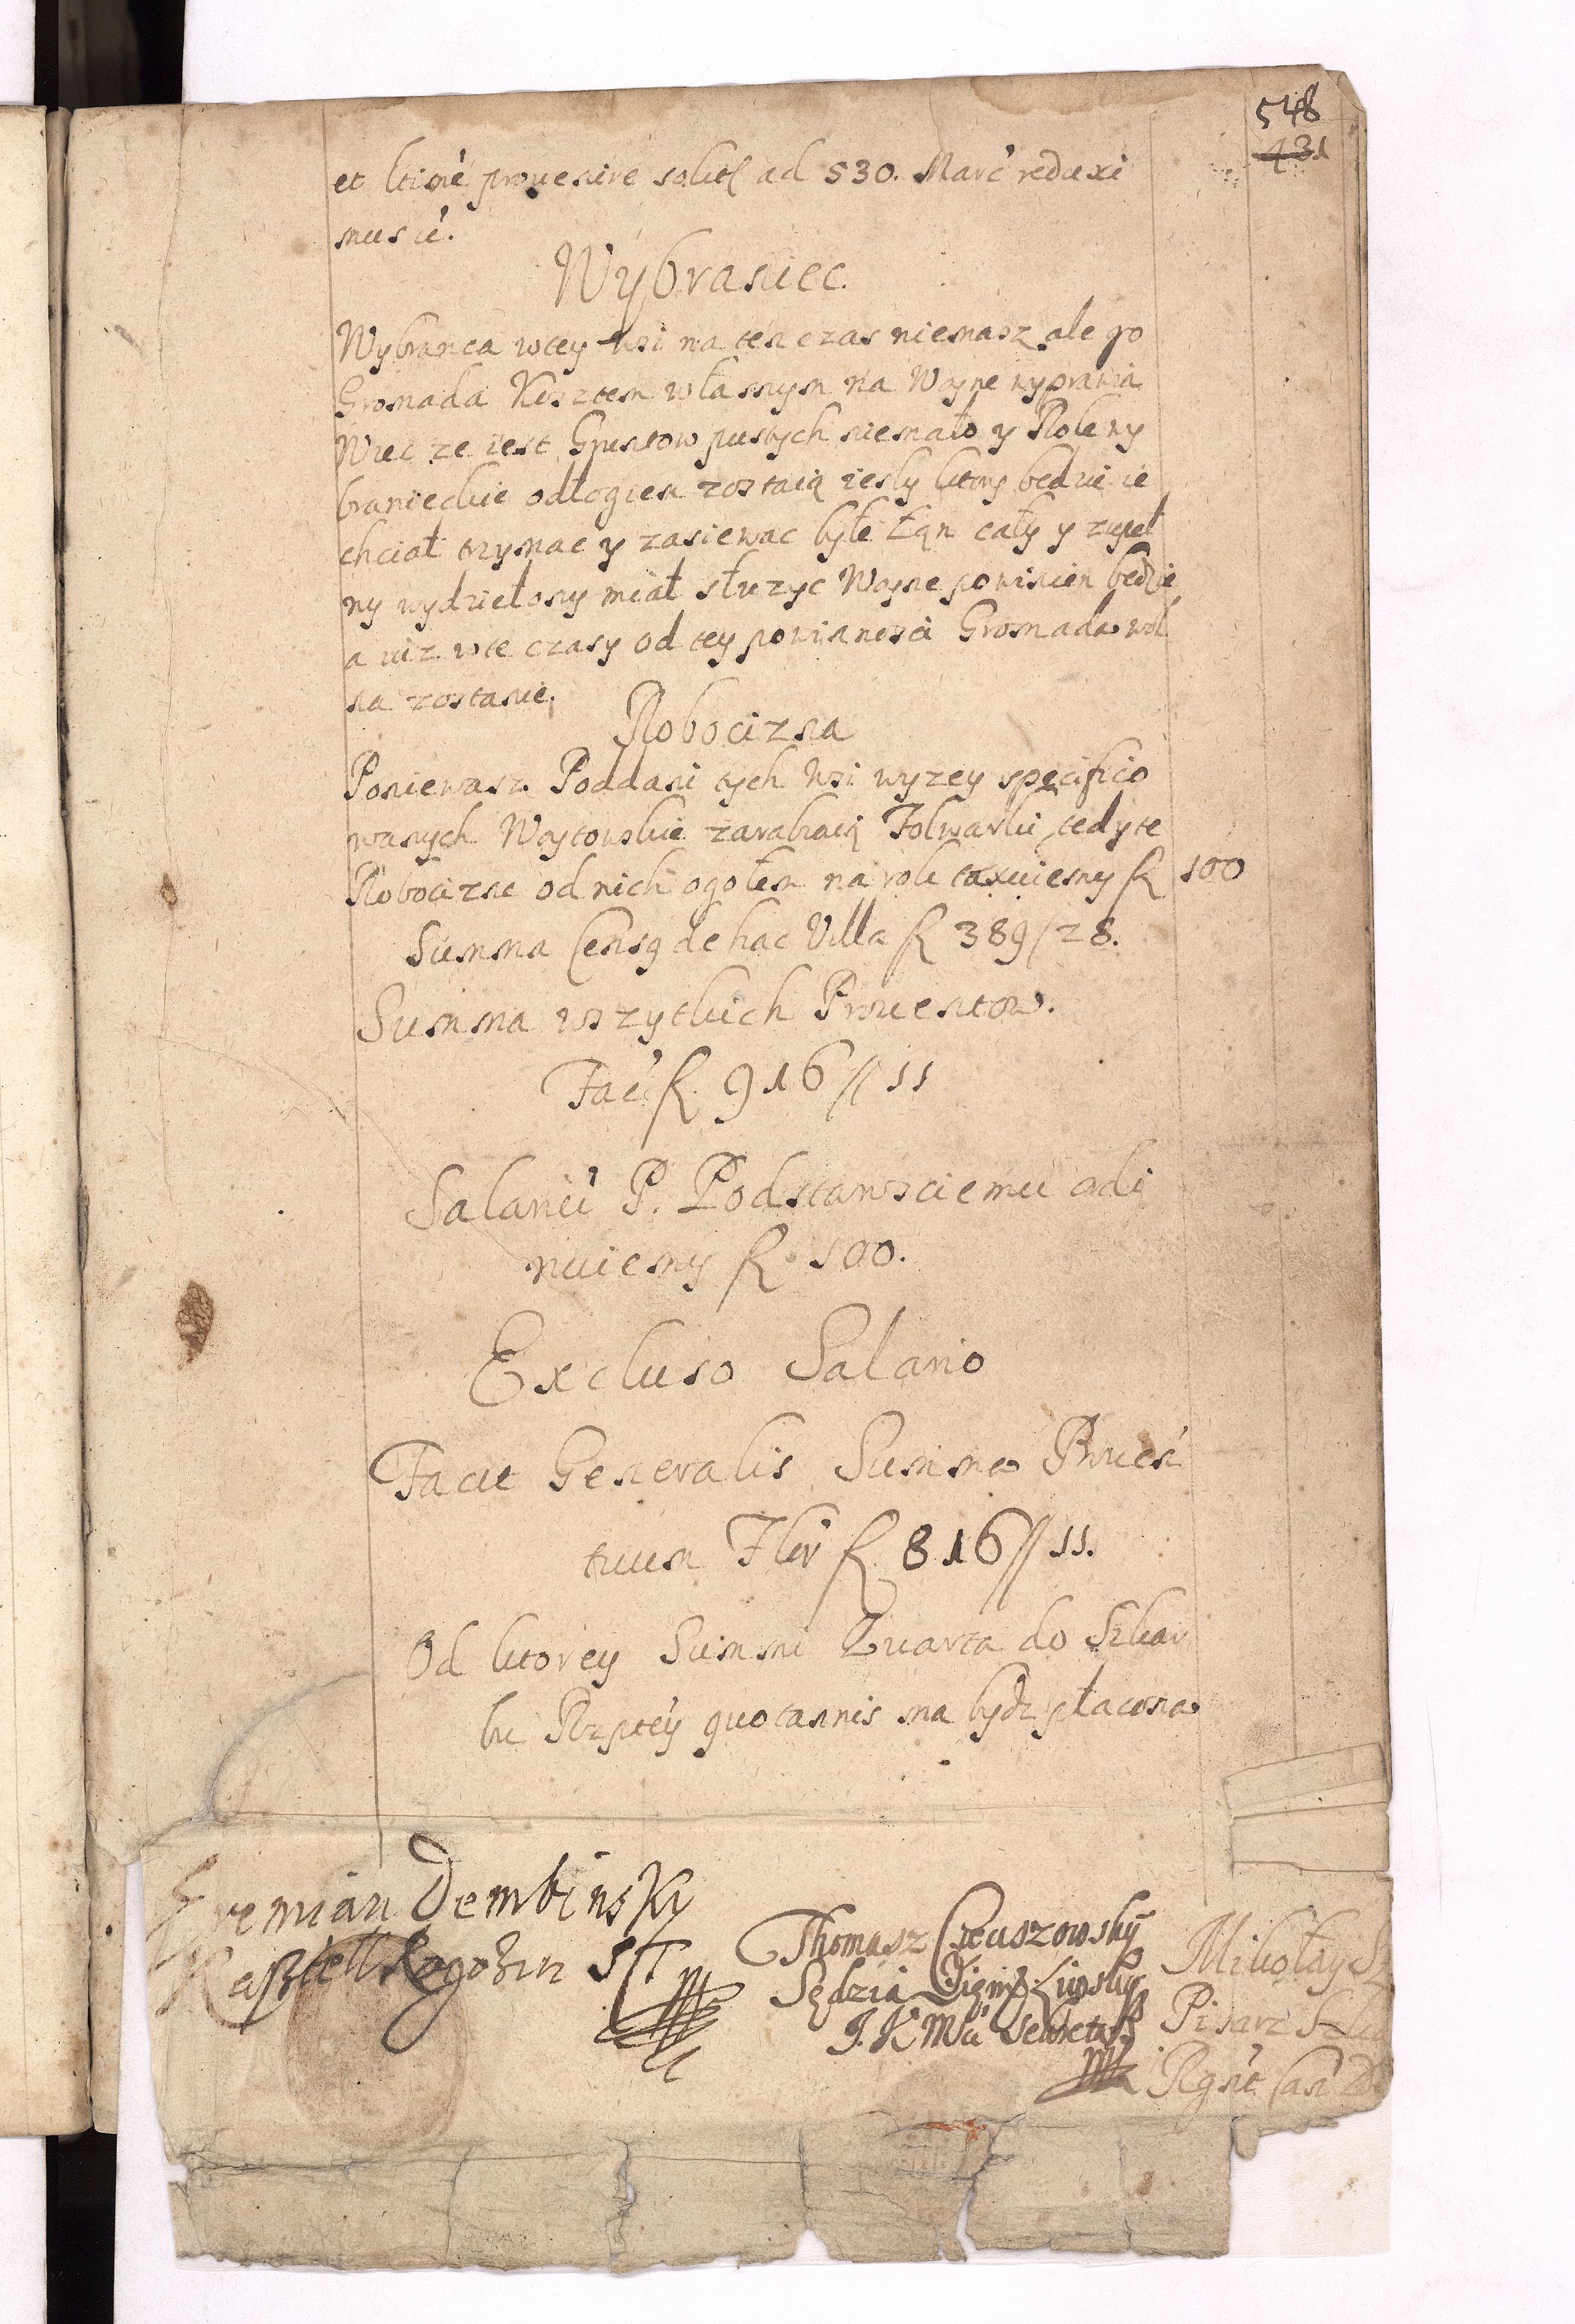 548
431
et ltimé prouenire solit ad 530. Marc reduxi
mus ie.
Wybraniec.
Wybranca wtey wsi na ten czas niemasz ale go
Gromada Kosztem własnym na Woyne wyprawia
Wiec ze iest Gruntow pustych niemało y Role wy
branieckie odłogiem zostaią iesly ktory bedzie ie
chciał trzymac y zasiewac byle Łąn cały y zupeł
ny wydzielony miał słuzyc Woyne powinien bedzie
a iuz wte czasy od tey powinnosci Gromada wol
na zostanie.
Robocizna
Poniewasz Poddani tych Wsi wyzey specifico
wanych Woytowskie zarabiaią Folwarki tedy te
Robocizne od nich ogołem na rok taxuiemy fl 100
Summa Censq de hac Villa fl 389/28.
Summa wszytkich Prouentow.
Fac fl. 916//11
Salariu P. Podstarosciemu ordi
nuiemy fl 100.
Excluso Salario
Facit Generalis Summa Prouen
tuum Flor fl 816//11.
Od ktorey Summi Quarta do Skar
bu Rzptey quotannis ma bydz płacona
Eremian Dembinsky
Kasztell Rogozin ST
Thomasz Cieuszowsky
Sędzia Ziems:
J. K Msci Sekretarz
Mikołay Sz
Pisarz
Rgnt Can